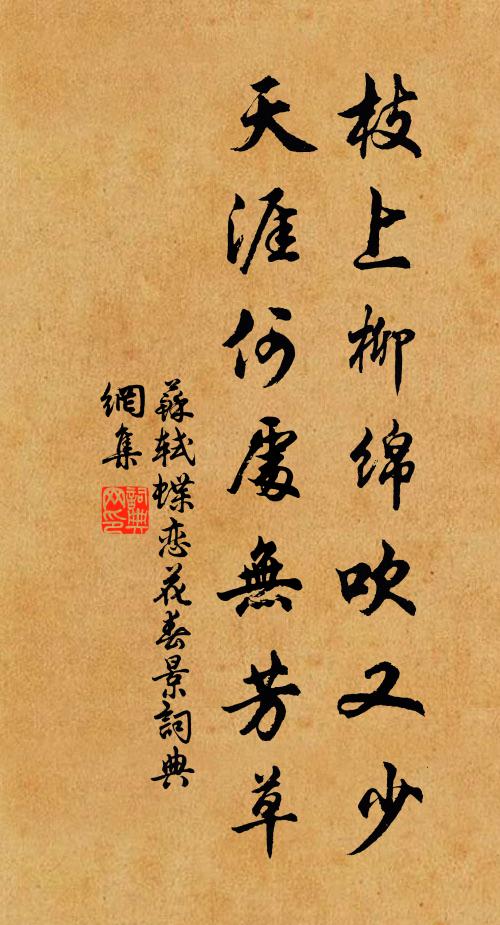 枝上柳綿吹又少
天涯何處無芳草
蘇軾蝶恋花春景詞典
網集
詞典
网印